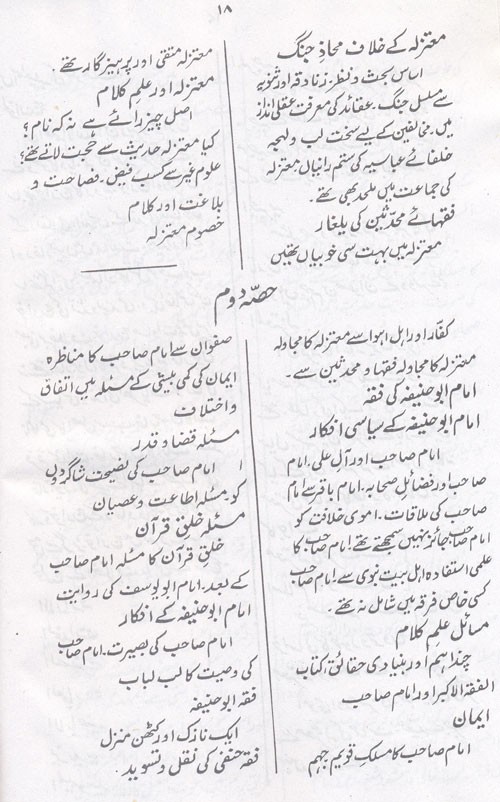 ۱۸
معتزلہ کے خلاف محاذِ جنگ
اساس بحث و نظر زنادقہ اور ثنویہ
سے مسلسل جنگ۔ عقائد کی معرفت عقلی انداز
میں۔ مخالفین کے لیے سخت لب و لہجہ
خلفائے عباسیہ کی ستم رانیاں معتزلہ
کی جماعت میں ملحد بھی تھے۔
فقہائے محدثین کی یلغار
معتزلہ میں بہت سی خوبیاں تھیں
معتزلہ متقی اور پرہیز گار تھے
معتزلہ اور علم کلام
اصل چیز رائے ہے نہ کہ نام؟
کیا معتزلہ حدیث سے حجت لاتے تھے؟
علوم غیر سے کسب فیض۔ فصاحت و
بلاغت اور کلام
خصوم معتزلہ
حصّہ دوم
کفار اور اہل اہوا سے معتزلہ کا مجادلہ
معتزلہ کا مجادلہ فقہاء و محدثین سے۔
امام ابو حنیفہ کی فقہ
امام ابو حنیفہ کے سیاسی افکار
امام صاحب اور آل علی، امام
صاحب اور فضائل صحابہ۔ امام باقر سے امام
صاحب کی ملاقات۔ اموی خلافت کو
امام صاحب جائز نہیں سمجھتے تھے! امام صاحب کا
علمی استفادہ اہل بیت نبوی سے! امام صاحب
کسی خاص فرقہ میں شامل نہ تھے۔
مسائل علم کلام
چند اہم اور بنیادی حقائق، کتاب
الفقہ الاکبر اور امام صاحب
ایمان
امام صاحب کا مسلک قویم جہم
صفوان سے امام صاحب کا مناظرہ
ایمان کی کمی بیشی کے مسئلہ میں اتفاق
و اختلاف
مسئلہ قضا و قدر
امام صاحب کی نصیحت شاگردوں
کو۔ مسئلہ اطاعت و عصیان
مسئلہ خلق قرآن
خلق قرآن کا مسئلہ امام صاحب
کے بعد۔ امام ابو یوسف کی روایت
امام ابو حنیفہ کے افکار
امام صاحب کی بصیرت۔ امام صاحب
کی وصیت کا لب لباب
فقہ ابو حنیفہ
ایک نازک اور کٹھن منزل
فقہ حنفی کی نقل و تسوید۔